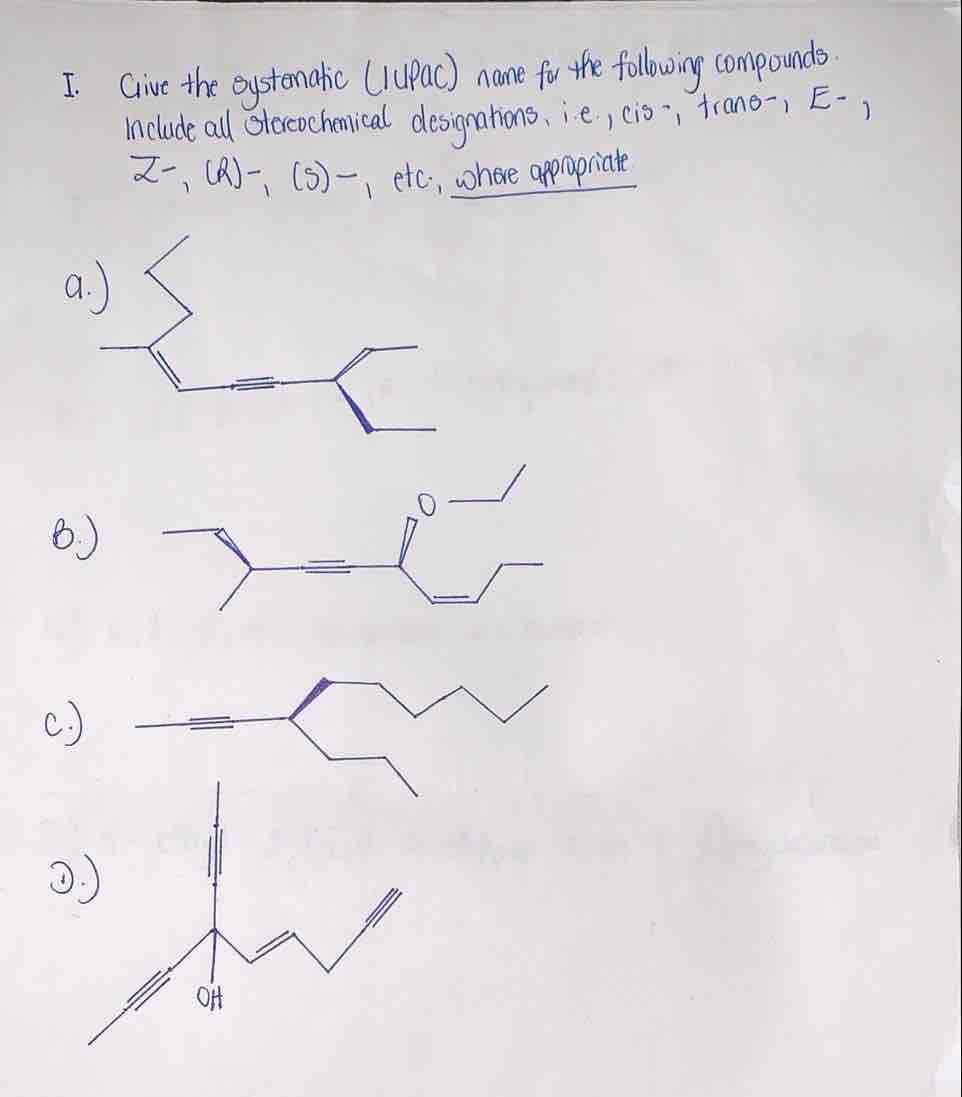 I. Give the systematic (IUPAC) name for the following compounds.
Include all stereochemical designations, i.e., cis-, trans-, E-,
Z-, (R)-, (S)-, etc., where appropriate
a.)
B.)
O
C.)
D.)
OH